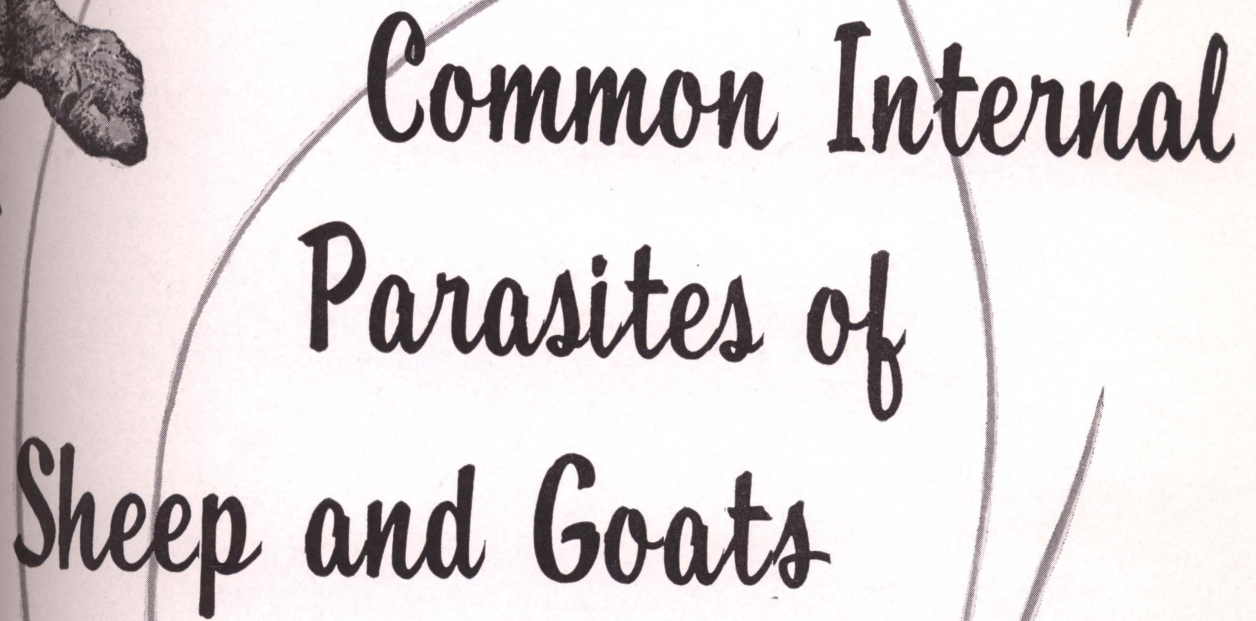 Common Internal
Parasites of
Sheep and Goats